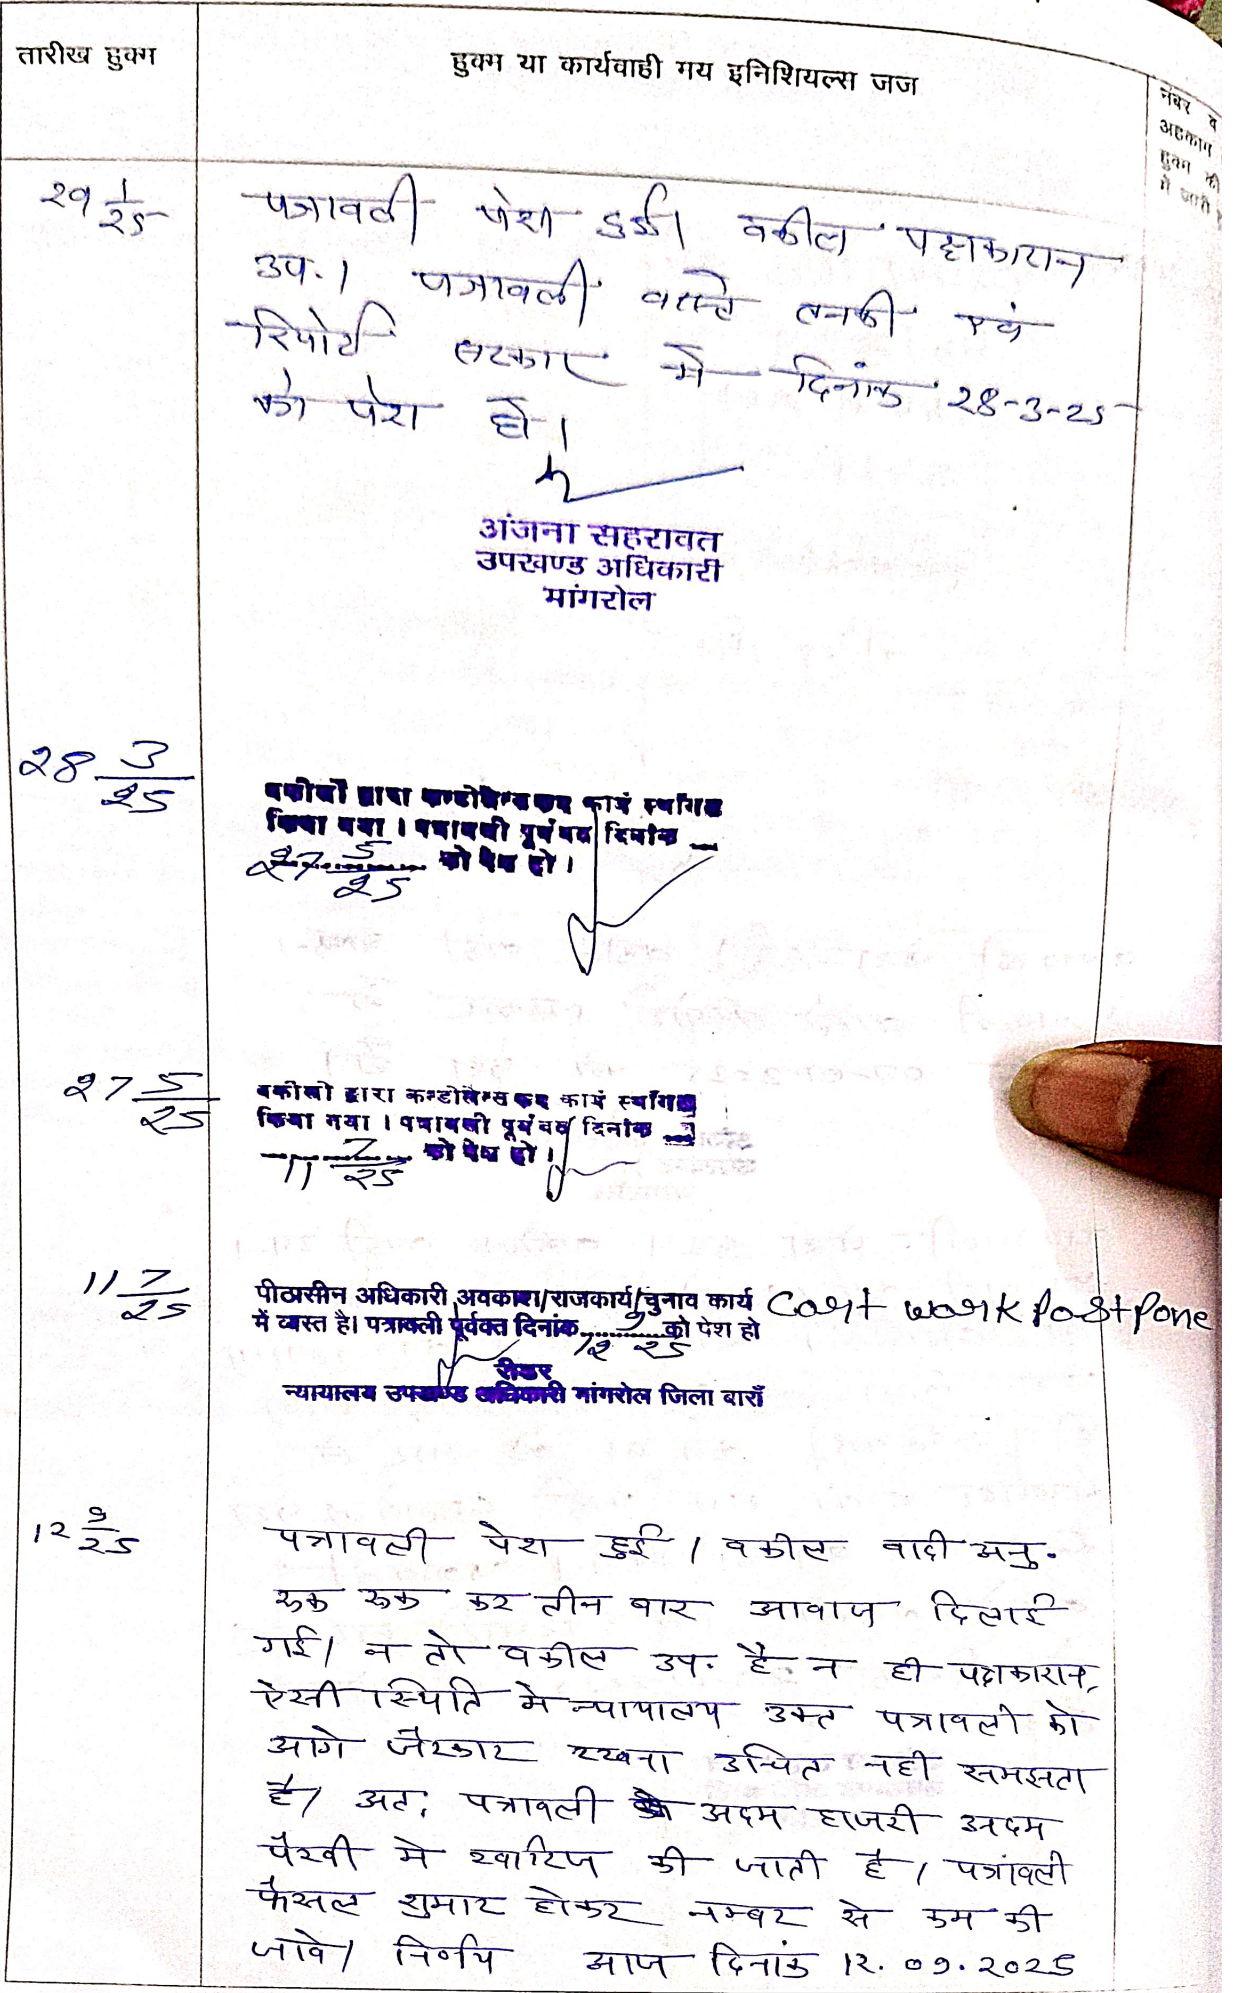 तारीख हुक्म
हुक्म या कार्यवाही मय इनिशियल्स जज
नंबर व
अहकाम
हुक्म की
में जारी
29 1/25
पत्रावली पेश हुई। वकील पक्षकारान
उप.। पत्रावली वास्ते तनकी एवं
रिपोर्ट सरकार मे दिनांक 28-3-25
को पेश हो।
अंजना सहरावत
उपखण्ड अधिकारी
मांगरोल
28 3/25
वकीलों द्वारा कण्डोलेन्स कर कार्य स्थगित
किया गया । पत्रावली पूर्ववत दिनांक
27 5/25 को पेश हो ।
27 5/25
वकीलो द्वारा कण्डोलेन्स कर कार्य स्थगित
किया गया । पत्रावली पूर्ववत दिनांक
11 7/25 को पेश हो ।
11 7/25
पीठासीन अधिकारी अवकाश/राजकार्य/चुनाव कार्य Cort work Postpone
में व्यस्त है। पत्रावली पूर्वक्त दिनांक 12 9/25 को पेश हो
रीडर
न्यायालय उपखण्ड अधिकारी मांगरोल जिला बाराँ
12 9/25
पत्रावली पेश हुई । वकील वादी अनु.
रुक रुक कर तीन बार आवाज दिलाई
गई। न तो वकील उप. है न ही पक्षकारान,
ऐसी स्थिति मे न्यायालय उक्त पत्रावली को
आगे जैरकार रखना उचित नही समझता
है। अतः पत्रावली अदम हाजरी अदम
पैरवी मे खारिज की जाती है । पत्रावली
फैसल शुमार होकर नम्बर से कम की
जावे। निर्णय आज दिनांक 12.09.2025